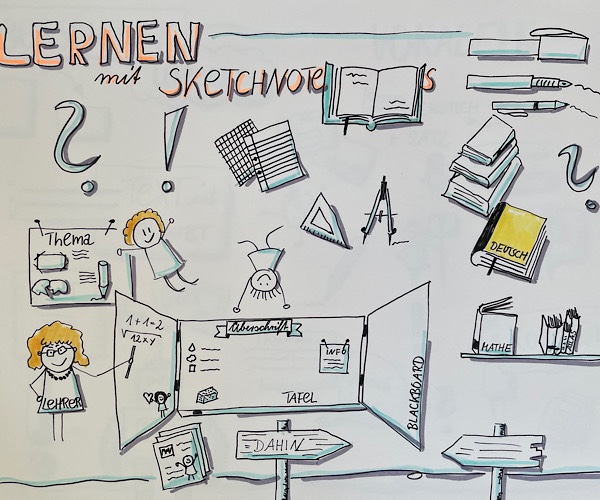 LERNEN
mit SKETCHNOTES
?
!
?
Thema
DEUTSCH
1+1=2
√12xy
Überschrift
INFO
MATHE
LEHRER
TAFEL
BLACKBOARD
DAHIN